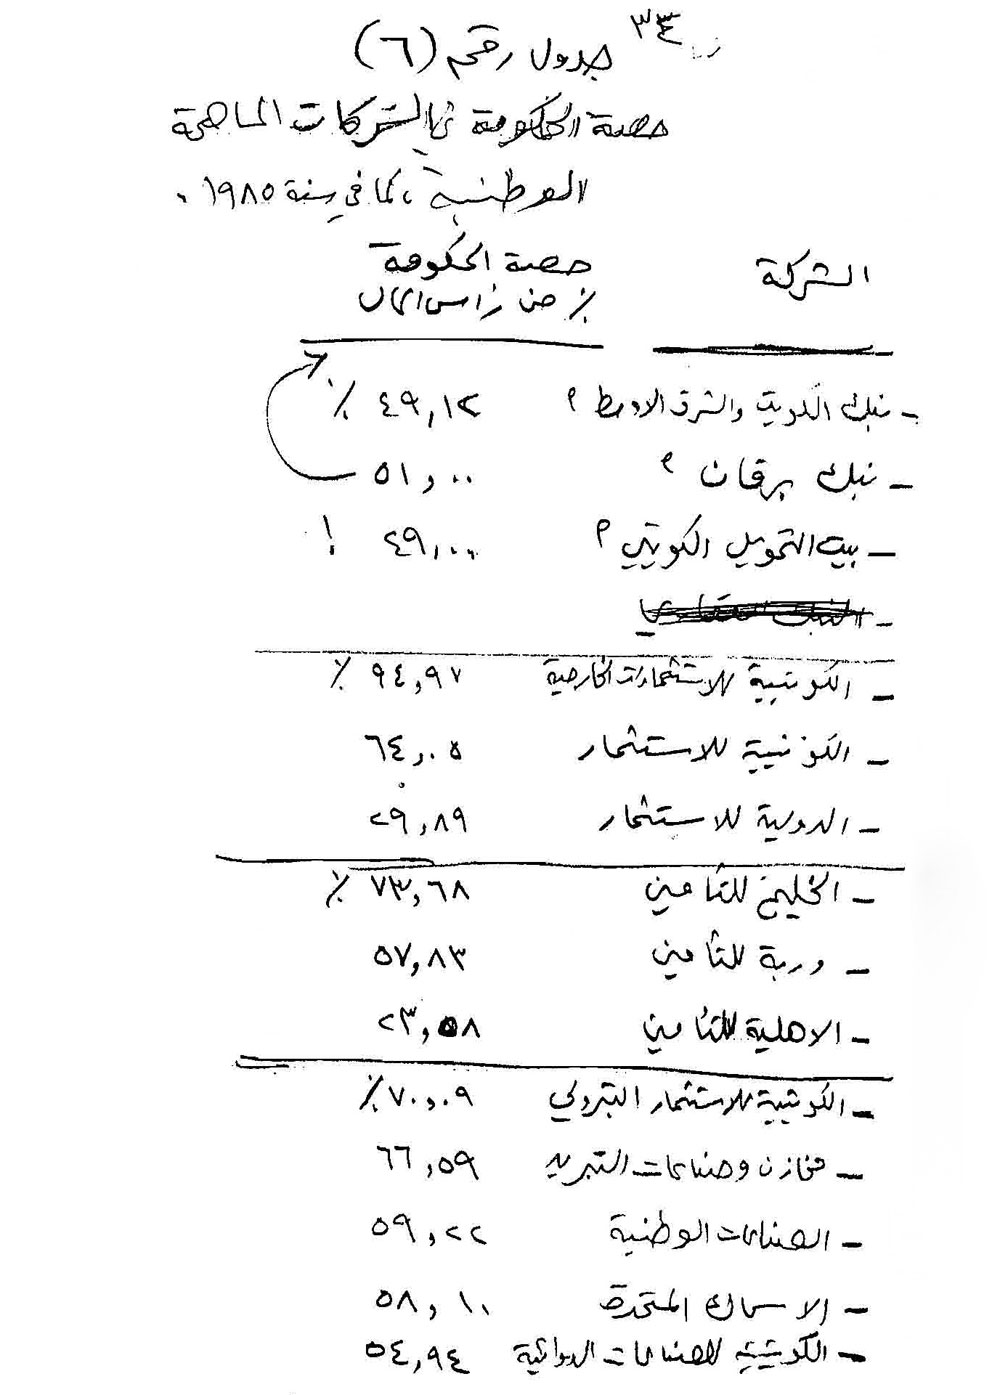 ٣٤
جدول رقم (٦)
حصة الحكومة في الشركات المساهمة
الوطنية، كما في سنة ١٩٨٥.
الشركة حصة الحكومة
٪ من رأس المال
- بنك الكويت والشرق الاوسط ؟ ٤٩,١٢ ٪
- بنك برقان ؟ ٥١,٠٠
- بيت التمويل الكويتي ؟ ٤٩,٠٠ !
- الكويتية للاستثمارات الخارجية ٩٤,٩٧ ٪
- الكويتية للاستثمار ٦٤,٠٥
- الدولية للاستثمار ٢٩,٨٩
- الخليج للتأمين ٧٣,٦٨ ٪
- وربة للتأمين ٥٧,٨٣
- الاهلية للتأمين ٢٣,٥٨
- الكويتية للاستثمار البترولي ٧٠,٠٩ ٪
- مخازن وصناعات التبريد ٦٦,٥٩
- الصناعات الوطنية ٥٩,٢٢
- الاسماك المتحدة ٥٨,١٠
- الكويتية للصناعات الدوائية ٥٤,٩٤